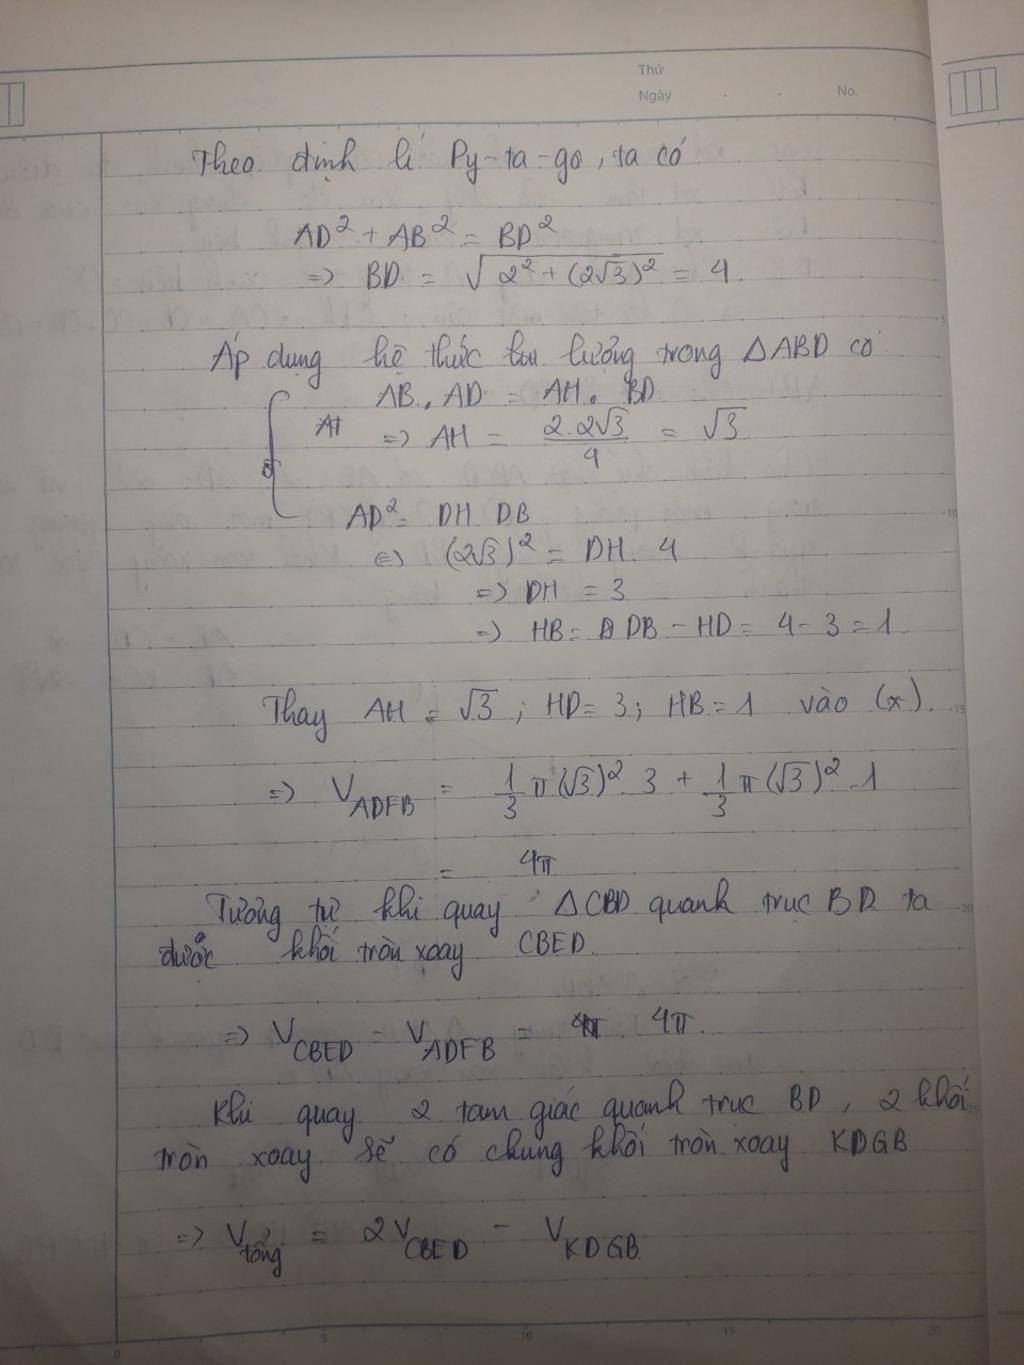 Thứ
Ngày . . No.
Theo định lí Py-ta-go, ta có
AD² + AB² = BD²
=> BD = √(2² + (2√3)²) = 4
Áp dụng hệ thức lượng trong △ABD có
AB . AD = AH . BD
=> AH = 2.2√3/4 = √3
AD² = DH DB
<=> (2√3)² = DH. 4
=> DH = 3
=> HB = DB - HD = 4 - 3 = 1
Thay AH = √3 ; HD = 3 ; HB = 1 vào (*)
=> V_ADFB = 1/3 π(√3)² 3 + 1/3 π(√3)² .1
= 4π
Tương tự khi quay △CBD quanh trục BD ta
được khối tròn xoay CBED
=> V_CBED = V_ADFB = 4π
Khi quay 2 tam giác quanh trục BD, 2 khối
tròn xoay sẽ có chung khối tròn xoay KDGB
=> V_tổng = 2V_CBED - V_KDGB
5
10
15
20
25
0 5 10 15 20